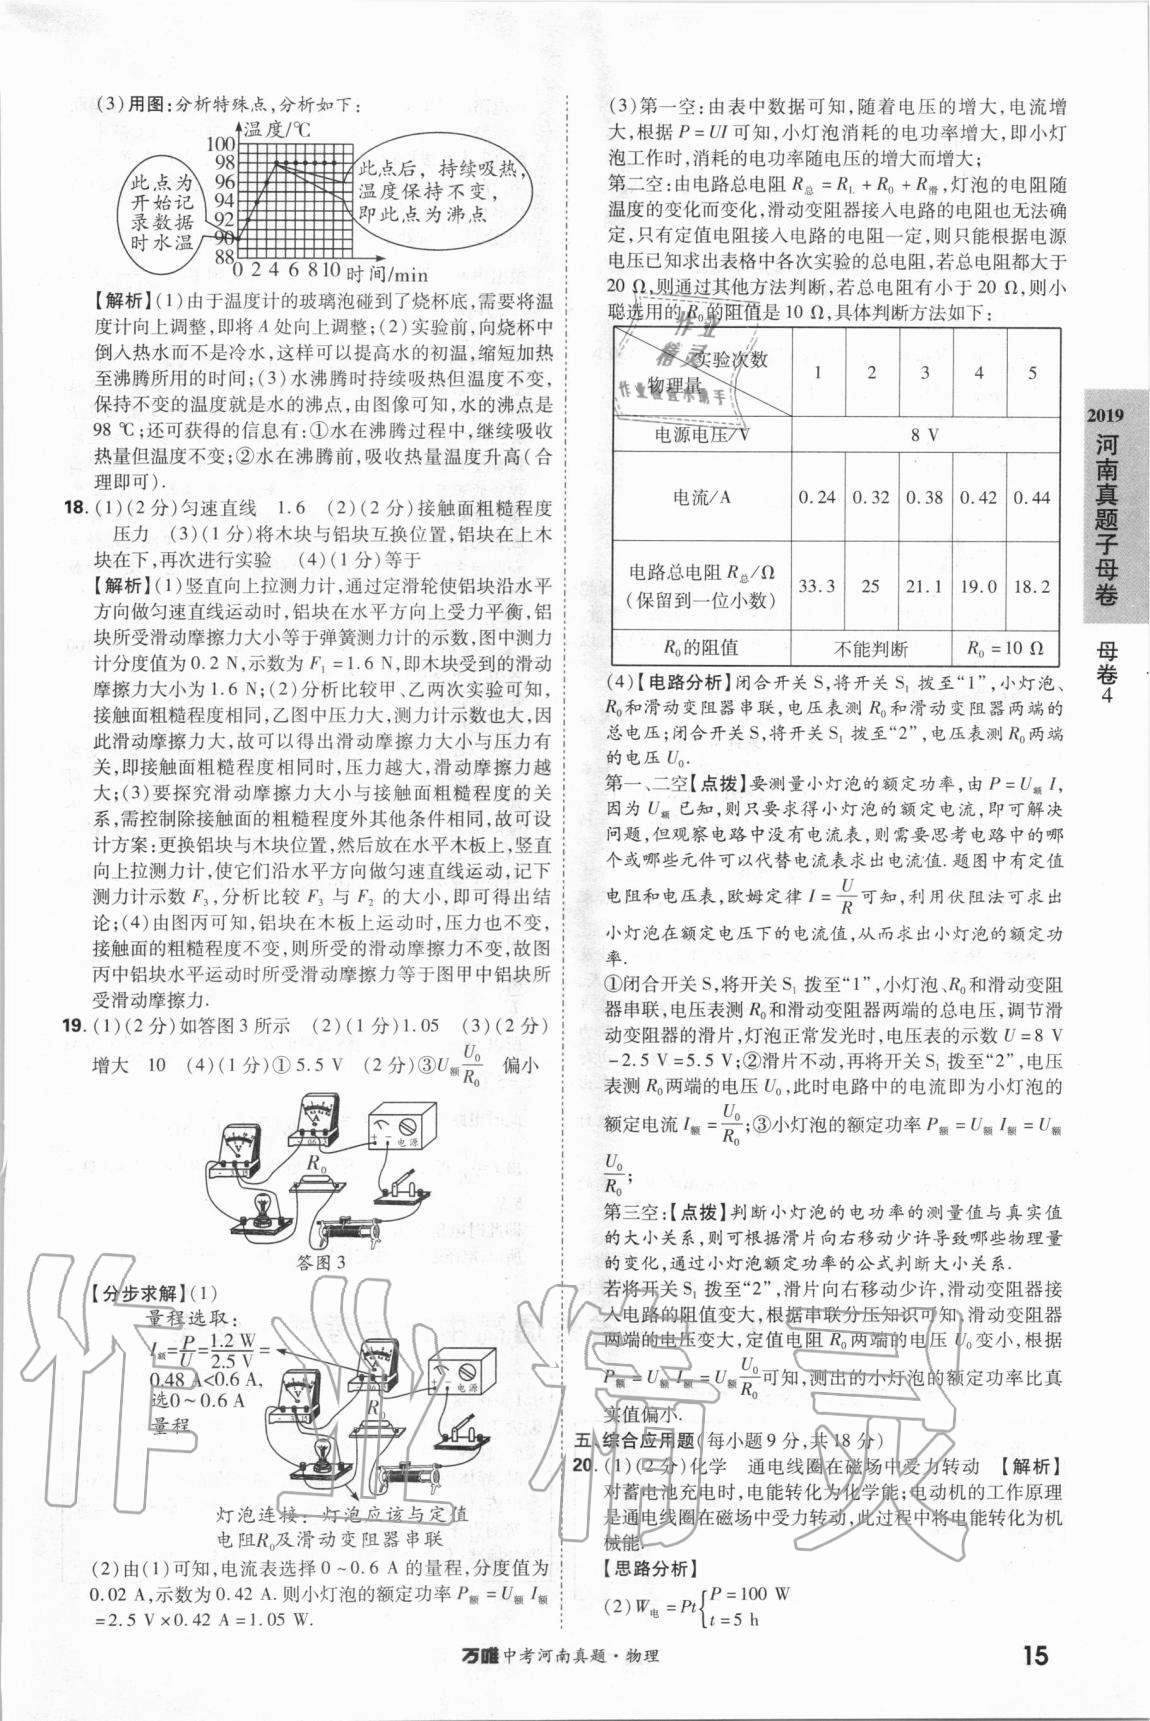 (3)用图:分析特殊点,分析如下:
温度/℃
100
98
96
94
92
90
88
0 2 4 6 8 10 时间/min
此点为
开始记
录数据
时水温
此点后，持续吸热,
温度保持不变，
即此点为沸点
【解析】(1)由于温度计的玻璃泡碰到了烧杯底,需要将温
度计向上调整,即将A处向上调整;(2)实验前,向烧杯中
倒入热水而不是冷水,这样可以提高水的初温,缩短加热
至沸腾所用的时间;(3)水沸腾时持续吸热但温度不变,
保持不变的温度就是水的沸点,由图像可知,水的沸点是
98 ℃;还可获得的信息有:①水在沸腾过程中,继续吸收
热量但温度不变;②水在沸腾前,吸收热量温度升高(合
理即可).
18.(1)(2分)匀速直线 1.6 (2)(2分)接触面粗糙程度
压力 (3)(1分)将木块与铝块互换位置,铝块在上木
块在下,再次进行实验 (4)(1分)等于
【解析】(1)竖直向上拉测力计,通过定滑轮使铝块沿水平
方向做匀速直线运动时,铝块在水平方向上受力平衡,铝
块所受滑动摩擦力大小等于弹簧测力计的示数,图中测力
计分度值为0.2 N,示数为F₁=1.6 N,即木块受到的滑动
摩擦力大小为1.6 N;(2)分析比较甲、乙两次实验可知,
接触面粗糙程度相同,乙图中压力大,测力计示数也大,因
此滑动摩擦力大,故可以得出滑动摩擦力大小与压力有
关,即接触面粗糙程度相同时,压力越大,滑动摩擦力越
大;(3)要探究滑动摩擦力大小与接触面粗糙程度的关
系,需控制除接触面的粗糙程度外其他条件相同,故可设
计方案:更换铝块与木块位置,然后放在水平木板上,竖直
向上拉测力计,使它们沿水平方向做匀速直线运动,记下
测力计示数F₃,分析比较F₃与F₂的大小,即可得出结
论;(4)由图丙可知,铝块在木板上运动时,压力也不变,
接触面的粗糙程度不变,则所受的滑动摩擦力不变,故图
丙中铝块水平运动时所受滑动摩擦力等于图甲中铝块所
受滑动摩擦力.
19.(1)(2分)如答图3所示 (2)(1分)1.05 (3)(2分)
增大 10 (4)(1分)①5.5 V (2分)③U额U₀/R₀ 偏小
R₀
电源
答图3
【分步求解】(1)
量程选取:
I额=P/U=1.2 W/2.5 V=
0.48 A<0.6 A,
选0~0.6 A
量程
R₀
电源
灯泡连接：灯泡应该与定值
电阻R₀及滑动变阻器串联
(2)由(1)可知,电流表选择0~0.6 A的量程,分度值为
0.02 A,示数为0.42 A.则小灯泡的额定功率P额=U额I额
=2.5 V×0.42 A=1.05 W.
(3)第一空:由表中数据可知,随着电压的增大,电流增
大,根据P=UI可知,小灯泡消耗的电功率增大,即小灯
泡工作时,消耗的电功率随电压的增大而增大;
第二空:由电路总电阻R总=R_L+R₀+R滑,灯泡的电阻随
温度的变化而变化,滑动变阻器接入电路的电阻也无法确
定,只有定值电阻接入电路的电阻一定,则只能根据电源
电压已知求出表格中各次实验的总电阻,若总电阻都大于
20 Ω,则通过其他方法判断,若总电阻有小于20 Ω,则小
聪选用的R₀的阻值是10 Ω,具体判断方法如下:
实验次数 1 2 3 4 5
物理量
电源电压/V 8 V
电流/A 0.24 0.32 0.38 0.42 0.44
电路总电阻R总/Ω
(保留到一位小数) 33.3 25 21.1 19.0 18.2
R₀的阻值 不能判断 R₀=10 Ω
(4)【电路分析】闭合开关S,将开关S₁拨至“1”,小灯泡、
R₀和滑动变阻器串联,电压表测R₀和滑动变阻器两端的
总电压;闭合开关S,将开关S₁拨至“2”,电压表测R₀两端
的电压U₀.
第一、二空【点拨】要测量小灯泡的额定功率,由P=U额I,
因为U额已知,则只要求得小灯泡的额定电流,即可解决
问题,但观察电路中没有电流表,则需要思考电路中的哪
个或哪些元件可以代替电流表求出电流值.题图中有定值
电阻和电压表,欧姆定律I=U/R可知,利用伏阻法可求出
小灯泡在额定电压下的电流值,从而求出小灯泡的额定功
率.
①闭合开关S,将开关S₁拨至“1”,小灯泡、R₀和滑动变阻
器串联,电压表测R₀和滑动变阻器两端的总电压,调节滑
动变阻器的滑片,灯泡正常发光时,电压表的示数U=8 V
-2.5 V=5.5 V;②滑片不动,再将开关S₁拨至“2”,电压
表测R₀两端的电压U₀,此时电路中的电流即为小灯泡的
额定电流I额=U₀/R₀;③小灯泡的额定功率P额=U额I额=U额
U₀/R₀;
第三空:【点拨】判断小灯泡的电功率的测量值与真实值
的大小关系,则可根据滑片向右移动少许导致哪些物理量
的变化,通过小灯泡额定功率的公式判断大小关系.
若将开关S₁拨至“2”,滑片向右移动少许,滑动变阻器接
入电路的阻值变大,根据串联分压知识可知,滑动变阻器
两端的电压变大,定值电阻R₀两端的电压U₀变小,根据
P额=U额I额=U额U₀/R₀可知,测出的小灯泡的额定功率比真
实值偏小.
五、综合应用题(每小题9分,共18分)
20.(1)(2分)化学 通电线圈在磁场中受力转动 【解析】
对蓄电池充电时,电能转化为化学能;电动机的工作原理
是通电线圈在磁场中受力转动,此过程中将电能转化为机
械能.
【思路分析】
(2)W电=Pt{P=100 W
t=5 h
2019
河南真题子母卷
母卷4
作业
精灵
作业检查小助手
作业精灵
万唯中考河南真题·物理
15